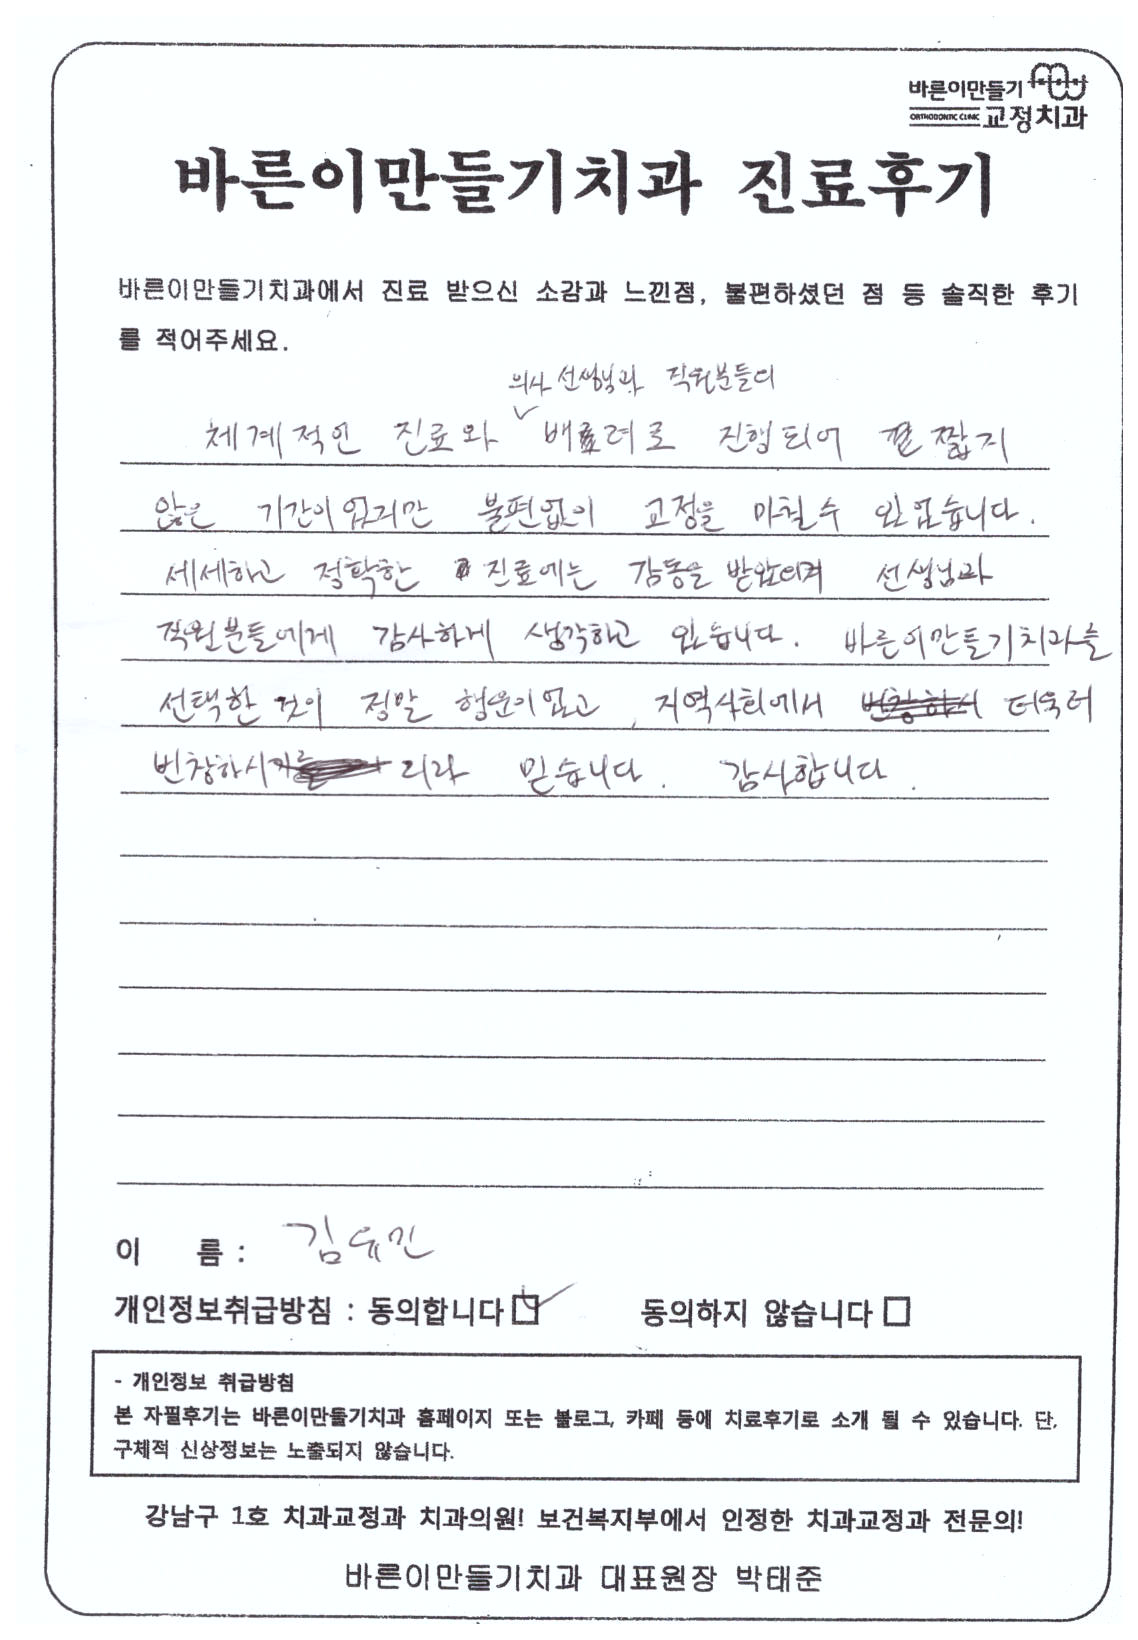 바른이만들기
ORTHODONTIC CLINIC 교정치과
바른이만들기치과 진료후기
바른이만들기치과에서 진료 받으신 소감과 느낀점, 불편하셨던 점 등 솔직한 후기
를 적어주세요.
의사 선생님과 직원분들의
체계적인 진료와 배려로 진행되어 결코 짧지
않은 기간이었지만 불편없이 교정을 마칠수 있었습니다.
세세하고 정확한 진료에는 감동을 받았으며 선생님과
직원분들에게 감사하게 생각하고 있습니다. 바른이만들기치과를
선택한 것이 정말 행운이었고, 지역사회에서 번창하시 더욱더
번창하시리라 믿습니다. 감사합니다.
이 름 : 김유진
개인정보취급방침 : 동의합니다 동의하지 않습니다
- 개인정보 취급방침
본 자필후기는 바른이만들기치과 홈페이지 또는 블로그, 카페 등에 치료후기로 소개 될 수 있습니다. 단,
구체적 신상정보는 노출되지 않습니다.
강남구 1호 치과교정과 치과의원! 보건복지부에서 인정한 치과교정과 전문의!
바른이만들기치과 대표원장 박태준